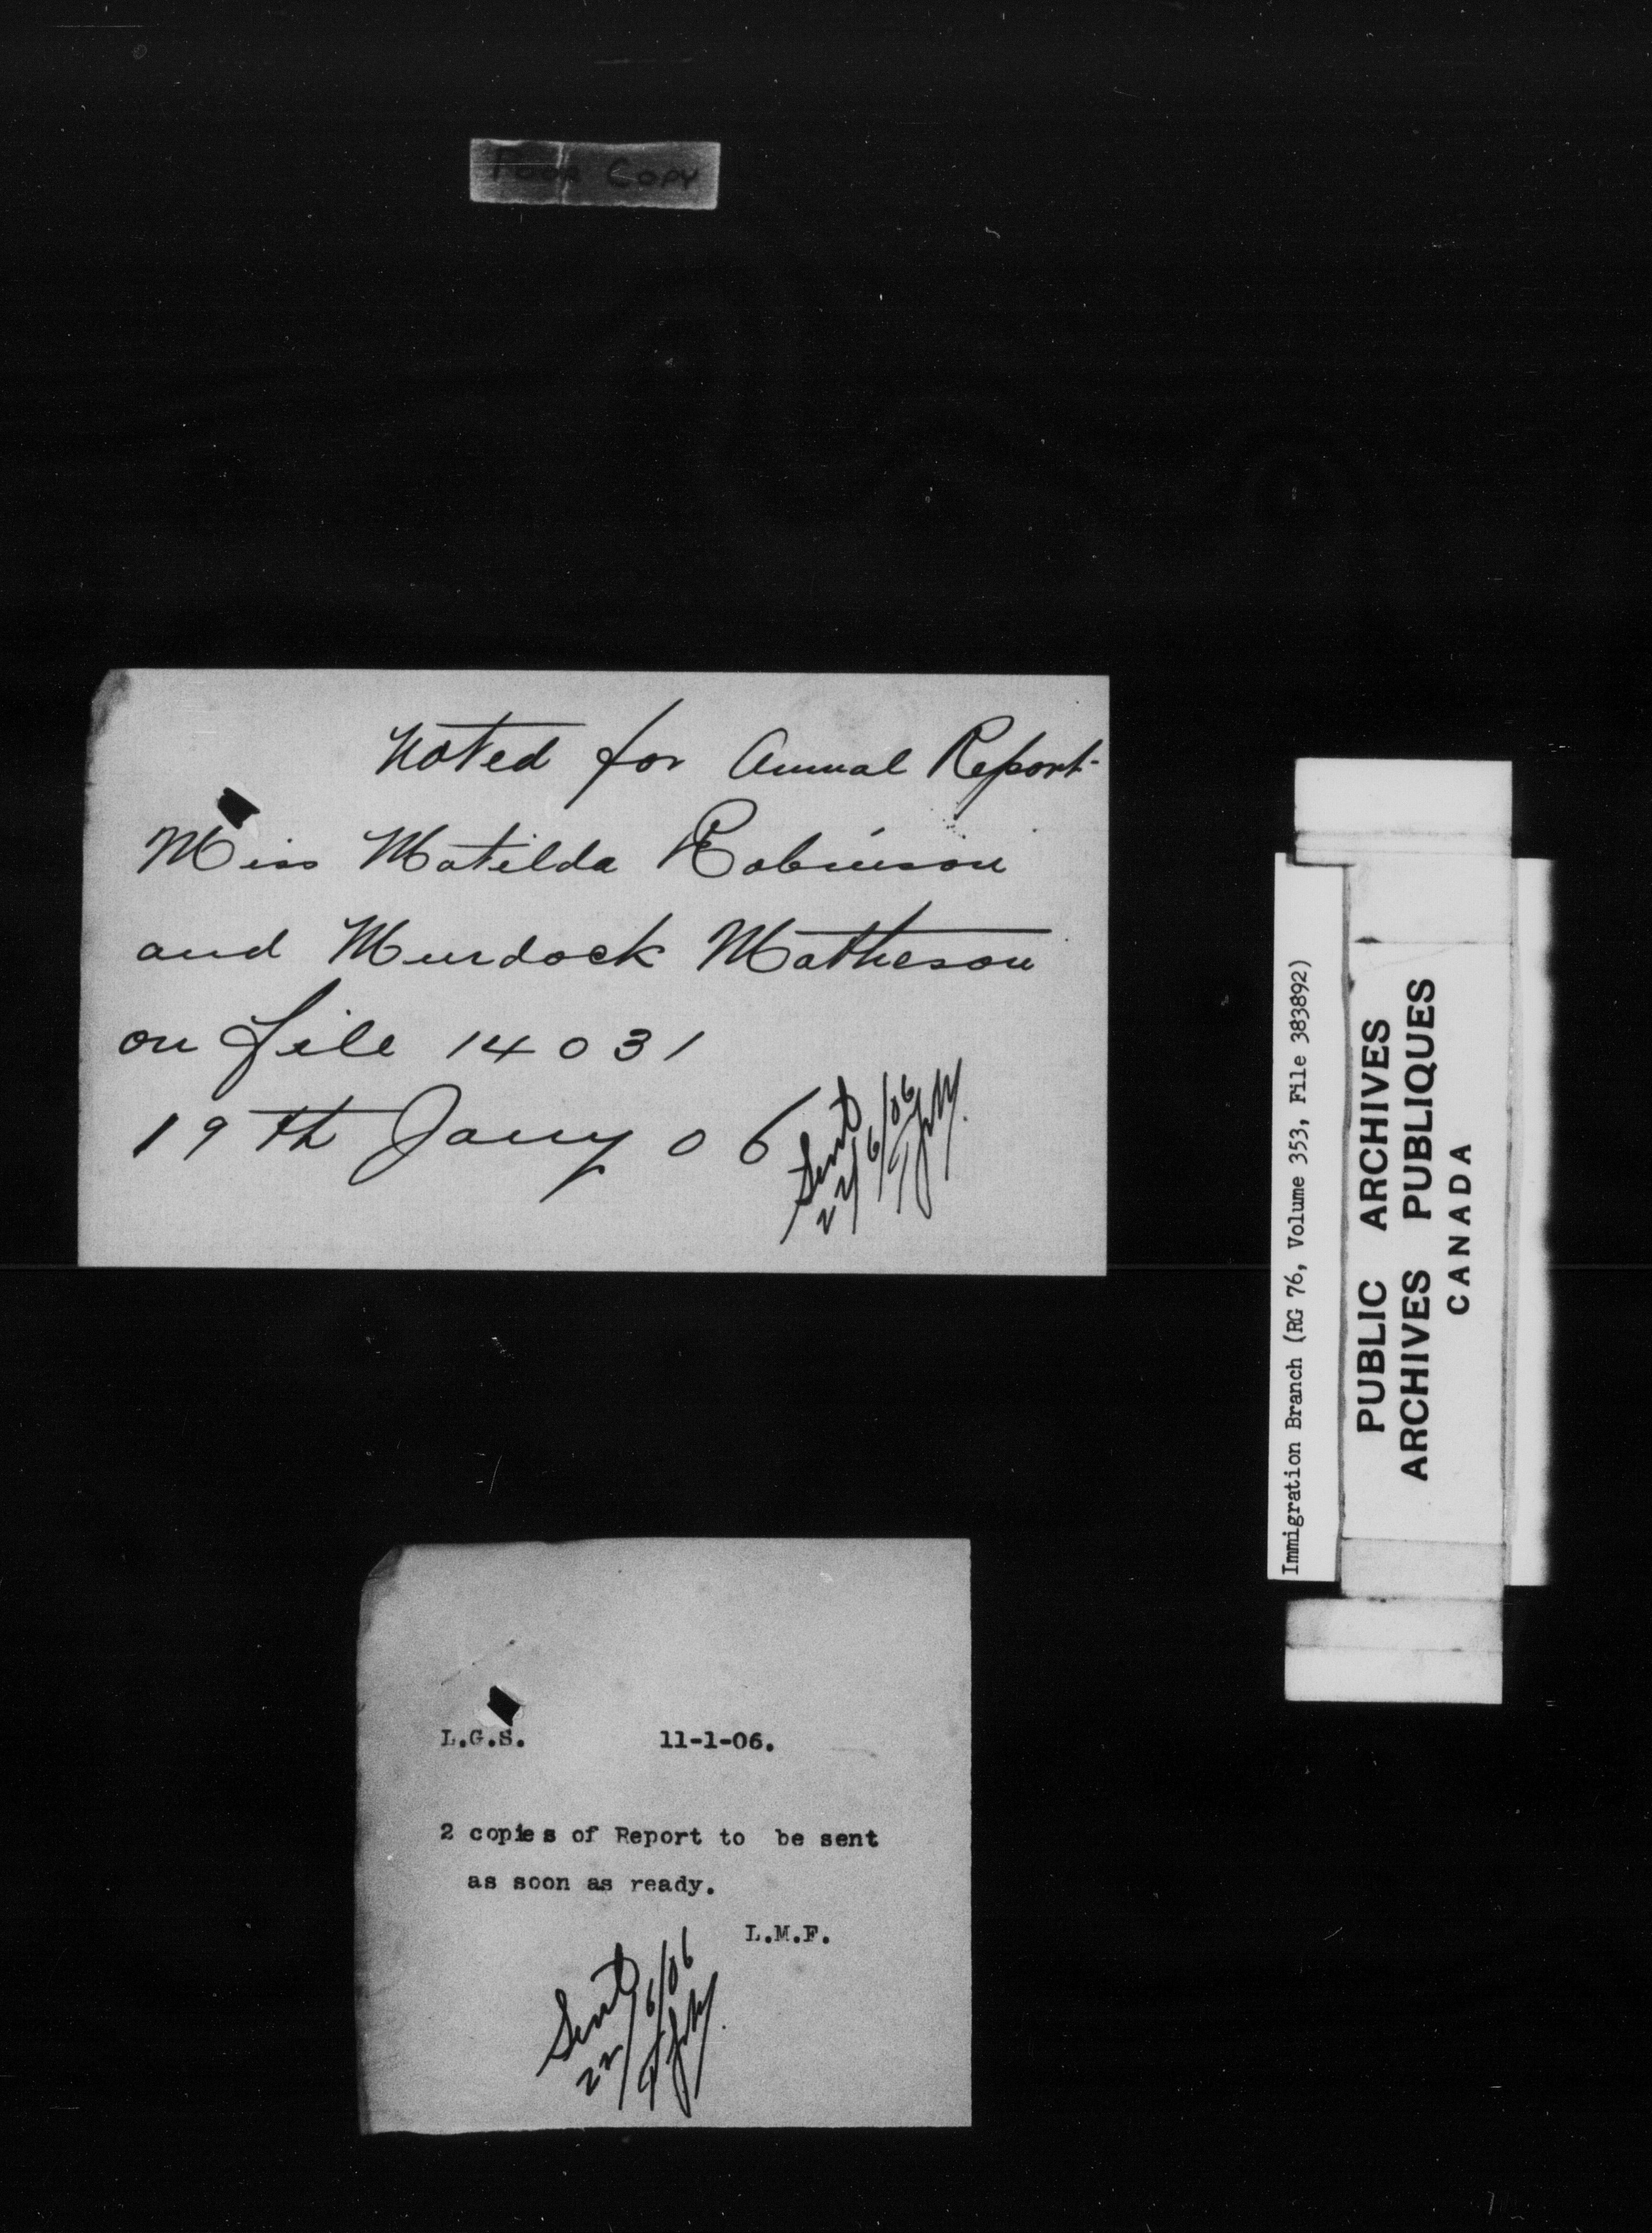 Poor Copy
Noted for Annual Report
Miss Matilda Robinson
and Murdock Matheson
on File 14031
19th Jany 06
Sent
22/6/06
L.G.S. 11-1-06.
2 copies of Report to be sent
as soon as ready.
L.M.F.
Sent
22/6/06
Immigration Branch (RG 76, Volume 353, File 383892)
PUBLIC ARCHIVES
ARCHIVES PUBLIQUES
CANADA